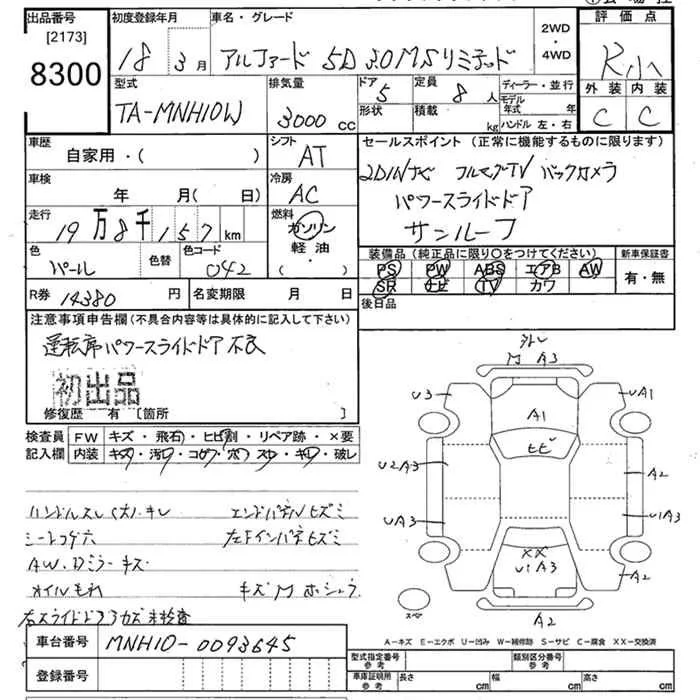 出品番号
[2173]
8300
初度登録年月
18 3月
車名・グレード
アルファード 5D 30MSリミテッド
2WD
・
4WD
評価点
R小
外装 内装
C C
型式
TA-MNH10W
排気量
3000 CC
ドア 5
形状
定員 8 人
積載 kg
ディーラー・並行
モデル年式 年
ハンドル 左・右
車歴
自家用・( )
シフト
AT
車検
年 月( 日)
冷房
AC
走行
19万8千157 km
燃料
ガソリン
軽油・
( )
色
パール
色替
色コード
042
R券 14380 円
名変期限 月 日
セールスポイント (正常に機能するものに限ります)
2DINナビ フルセグTV バックカメラ
パワースライドドア
サンルーフ
装備品 (純正品に限り○をつけてください)
PS PW ABS エアB AW
SR ナビ TV カワ
新車保証書
有・無
後日品
注意事項申告欄 (不具合内容等は具体的に記入して下さい)
運転席パワースライドドア不良
初出品
修復歴 有 [箇所 ]
検査員
記入欄
FW キズ・飛石・ヒビ割・リペア跡・×要
内装 キズ・汚レ・コゲ・穴・スレ・キレ・破レ
ハンドルスレ(大)・キレ
エンドパネルヒズミ
シートコゲ穴
左下インパネヒズミ
AW.Dミラーキズ
オイルもれ
キズM
車台番号
MNH10-0093645
登録番号
M A3
U3
UA1
A1
ヒビ
U2A3
A2
UA3
U1A3
XX
U1A3
A2
A2
スペア
A-キズ E-エクボ U-凹み W-補修跡 S-サビ C-腐食 XX-交換済
型式指定番号
参考
類別区分番号
参考
車庫証明所
参考
長さ cm
幅 cm
高さ cm